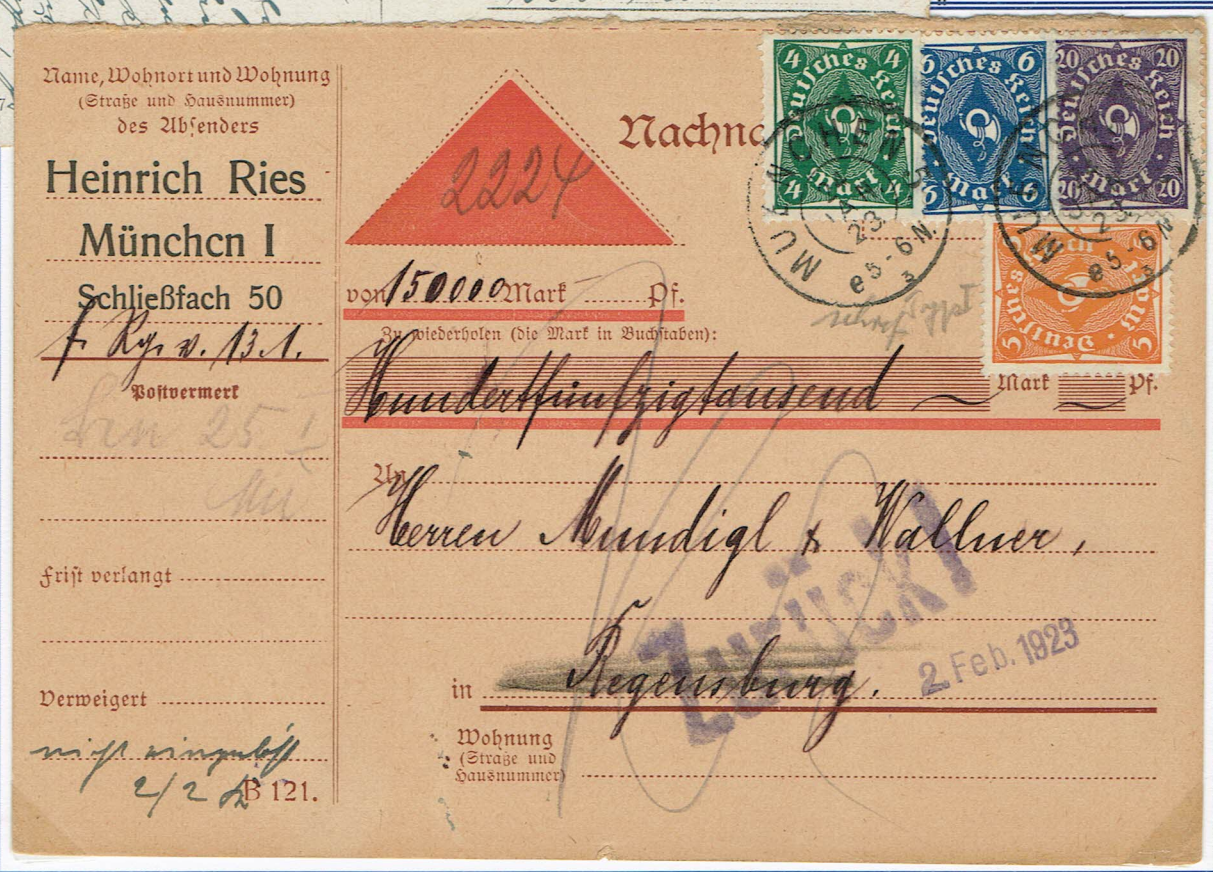 Name, Wohnort und Wohnung
(Straße und Hausnummer)
des Absenders
Heinrich Ries
München I
Schließfach 50
f. Rg. v. 13.1.
Postvermerk
25. I
Frist verlangt
Verweigert
nicht eingelöst
2/2
B 121.
2224
Nachna
4 4
Deutsches Reich
Mark
4 4
6 6
Deutsches Reich
Mark
6 6
20 20
Deutsches Reich
Mark
20 20
5 5
Deutsches Reich
Mark
5 5
MUENCHEN
JAN
23
5-6 N.
MUENCHEN
23
5-6 N.
von 150000 Mark Pf.
Zu wiederholen (die Mark in Buchstaben):
Hundertfünfzigtausend Mark Pf.
An
Herren Mundigl & Wallner,
Zurück!
2. Feb. 1923
in Regensburg.
Wohnung
(Straße und
Hausnummer)